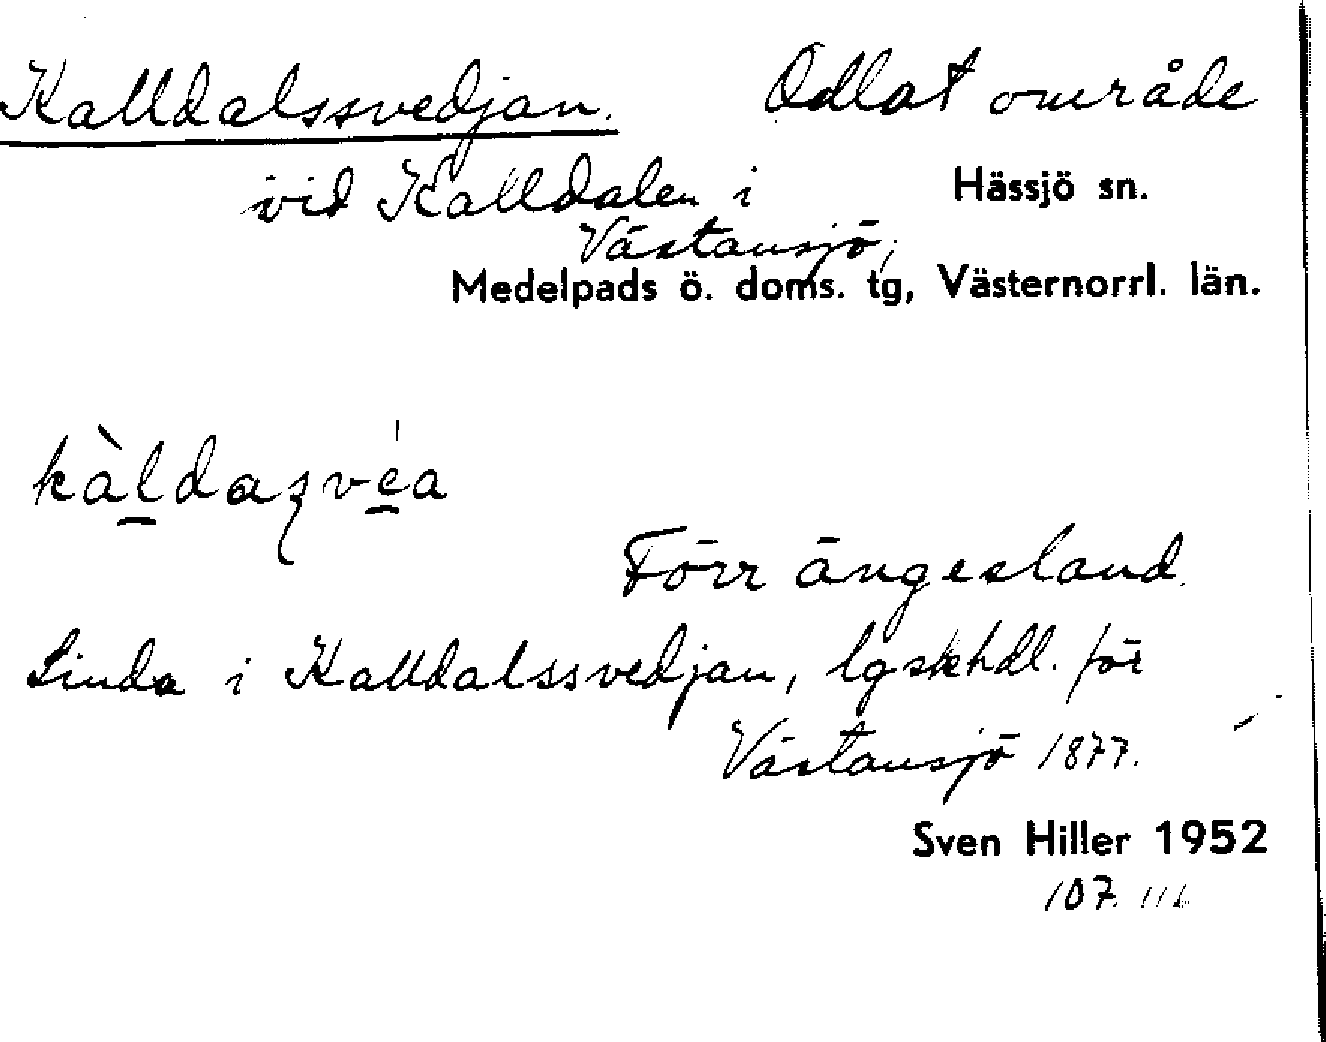 Kalldalssvedjan. Odlat område
vid Kalldalen i Hässjö sn.
Västansjö,
Medelpads ö. doms. tg, Västernorrl. län.
kàldaʒvéa
Förr ängesland.
Linda i Kalldalssvedjan, lgskhdl. för
Västansjö 1877.
Sven Hiller 1952
107.